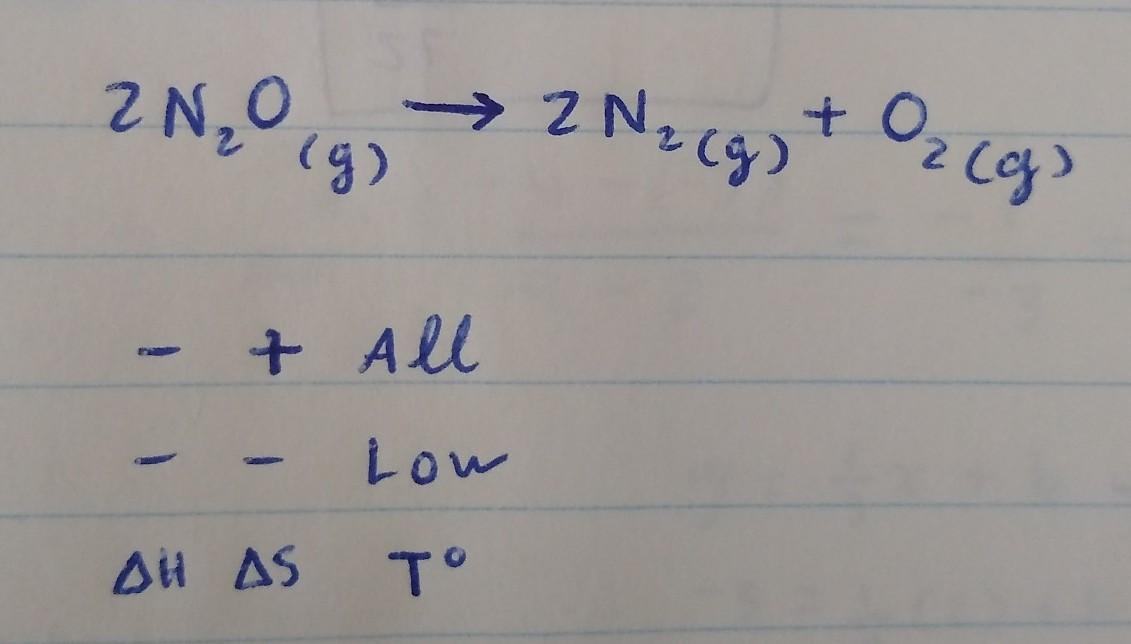 2N₂O(g) → 2N₂(g) + O₂(g)
- + All
- - Low
ΔH ΔS T°